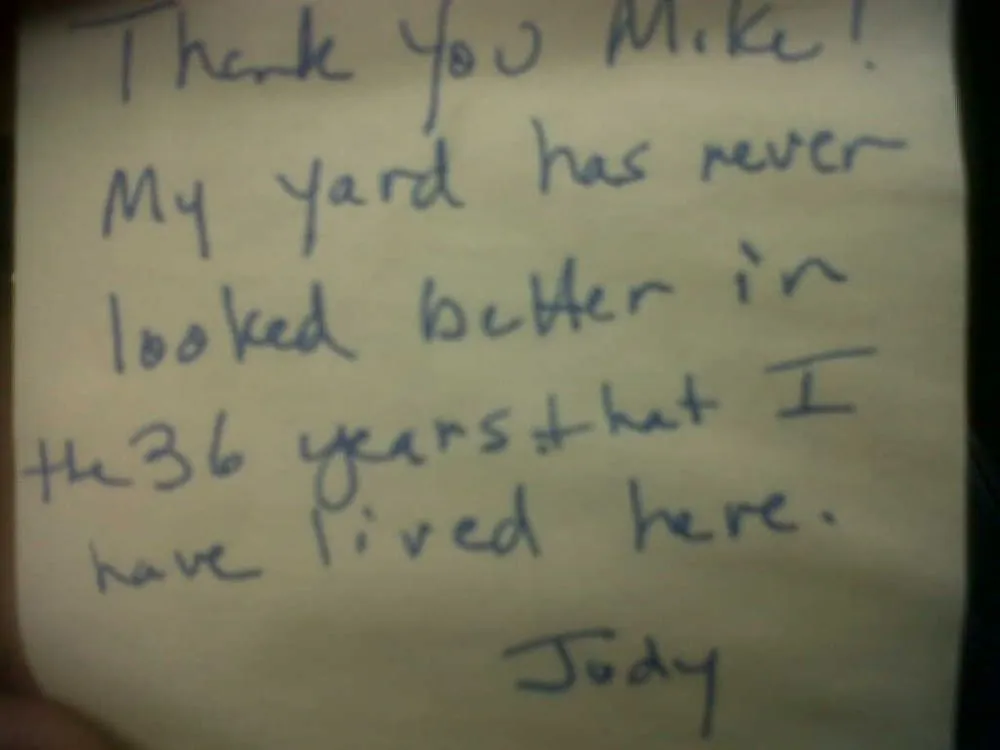 Thank You Mike!
My yard has never
looked better in
the 36 years that I
have lived here.
Judy